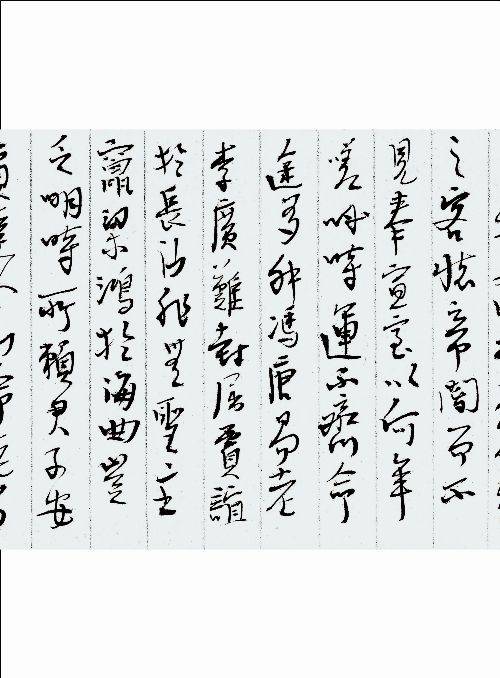 之客懷帝閽而不
見奉宣室以何年
嗟呼時運不齊命
途多舛馮唐易老
李廣難封屈賈誼
於長沙非無聖主
竄梁鴻於海曲豈
乏明時所賴君子安